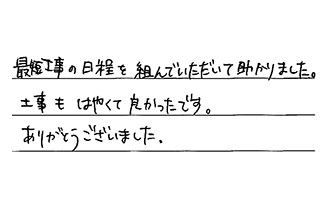 最短工事の日程を組んでいただいて助かりました。
工事もはやくて良かったです。
ありがとうございました.